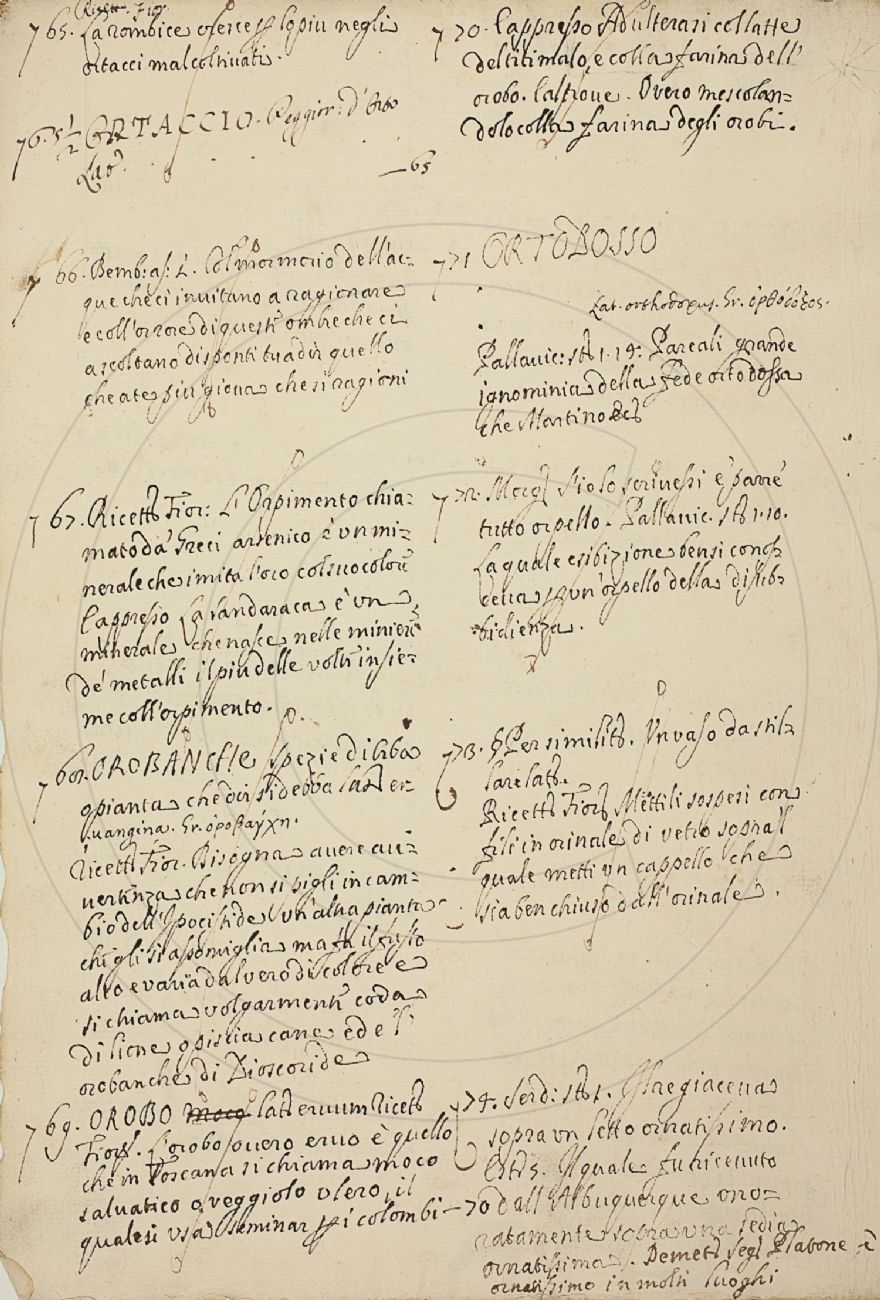 Ricett. Fior.
765. La rombice cresce p lo piu negli
ortacci mal coltivati.
765 1/2 ORTACCIO. Peggior: d'Orto
Lat.
— 65
766. Bemb: as: L. Col mormorio dell'ac=
que che ci invitano a ragionare
e coll'orrore di queste ombre che ci
ascoltano disponti tu a dir quello
che a te piu giova che si ragioni
767. Ricett Fior: L'Orpimento chia=
mato da Greci arsenico è un mi=
nerale che imita l'oro col suo colore
l'appresso La sandaraca è un
minerale che nasce nelle miniere
de' metalli il piu delle volte insie=
me coll'orpimento.
768. OROBANCHE spezie di erba
o pianta che
vangina. Gr. ὀροβάγχη.
Ricett Fior. Bisogna avere av=
vertenza che non si pigli in cam=
bio dell'Ipocistide un'altra pianta
che gli si assomiglia ma fa il fusto
alto e varia dal vero di colore e
si chiama volgarmente coda
di lione o piscia cane ed e l'
orobanche di Dioscoride
769. OROBO lat ervum Ricett
Fior. L'orobo ovvero ervo è quello
che in Toscana si chiama moco
salvatico o veggiolo o lero, il
quale si usa seminar p i colombi
770. l'appresso Adulterasi col latte
del titimalo, e colla farina dell'
orobo. l'altrove. Overo mescolan=
dolo colla farina degli orobi.
771 ORTODOSSO
Lat. orthodoxus. Gr. ὀρθόδοξος.
Pallavic: st 1. 19: Pareali grande
ignominia della Fede ortodossa
che Martino
772. Morg S'io lo scrivessi e' parrè
tutto orpello. Pallavic. st 1. 10.
La quale esibizione bensi conos
p un'orpello della disub=
bidienza.
773. § Per similit. Un vaso da stil=
lare lat.
Ricett Fior Mettili sospesi con
fili in orinale di vetro sopra'l
quale metti un cappello che
sia ben chiuso dall'orinale.
774. Serd: st 1. Il re giaceva
sopra un letto ornatissimo.
E st 5. Il quale fu ricevuto
— 70 dall'Albuquerque ono=
ratamente sopra una sedia
ornatissima. Demetr Segn Platone è
ornatissimo in molti luoghi